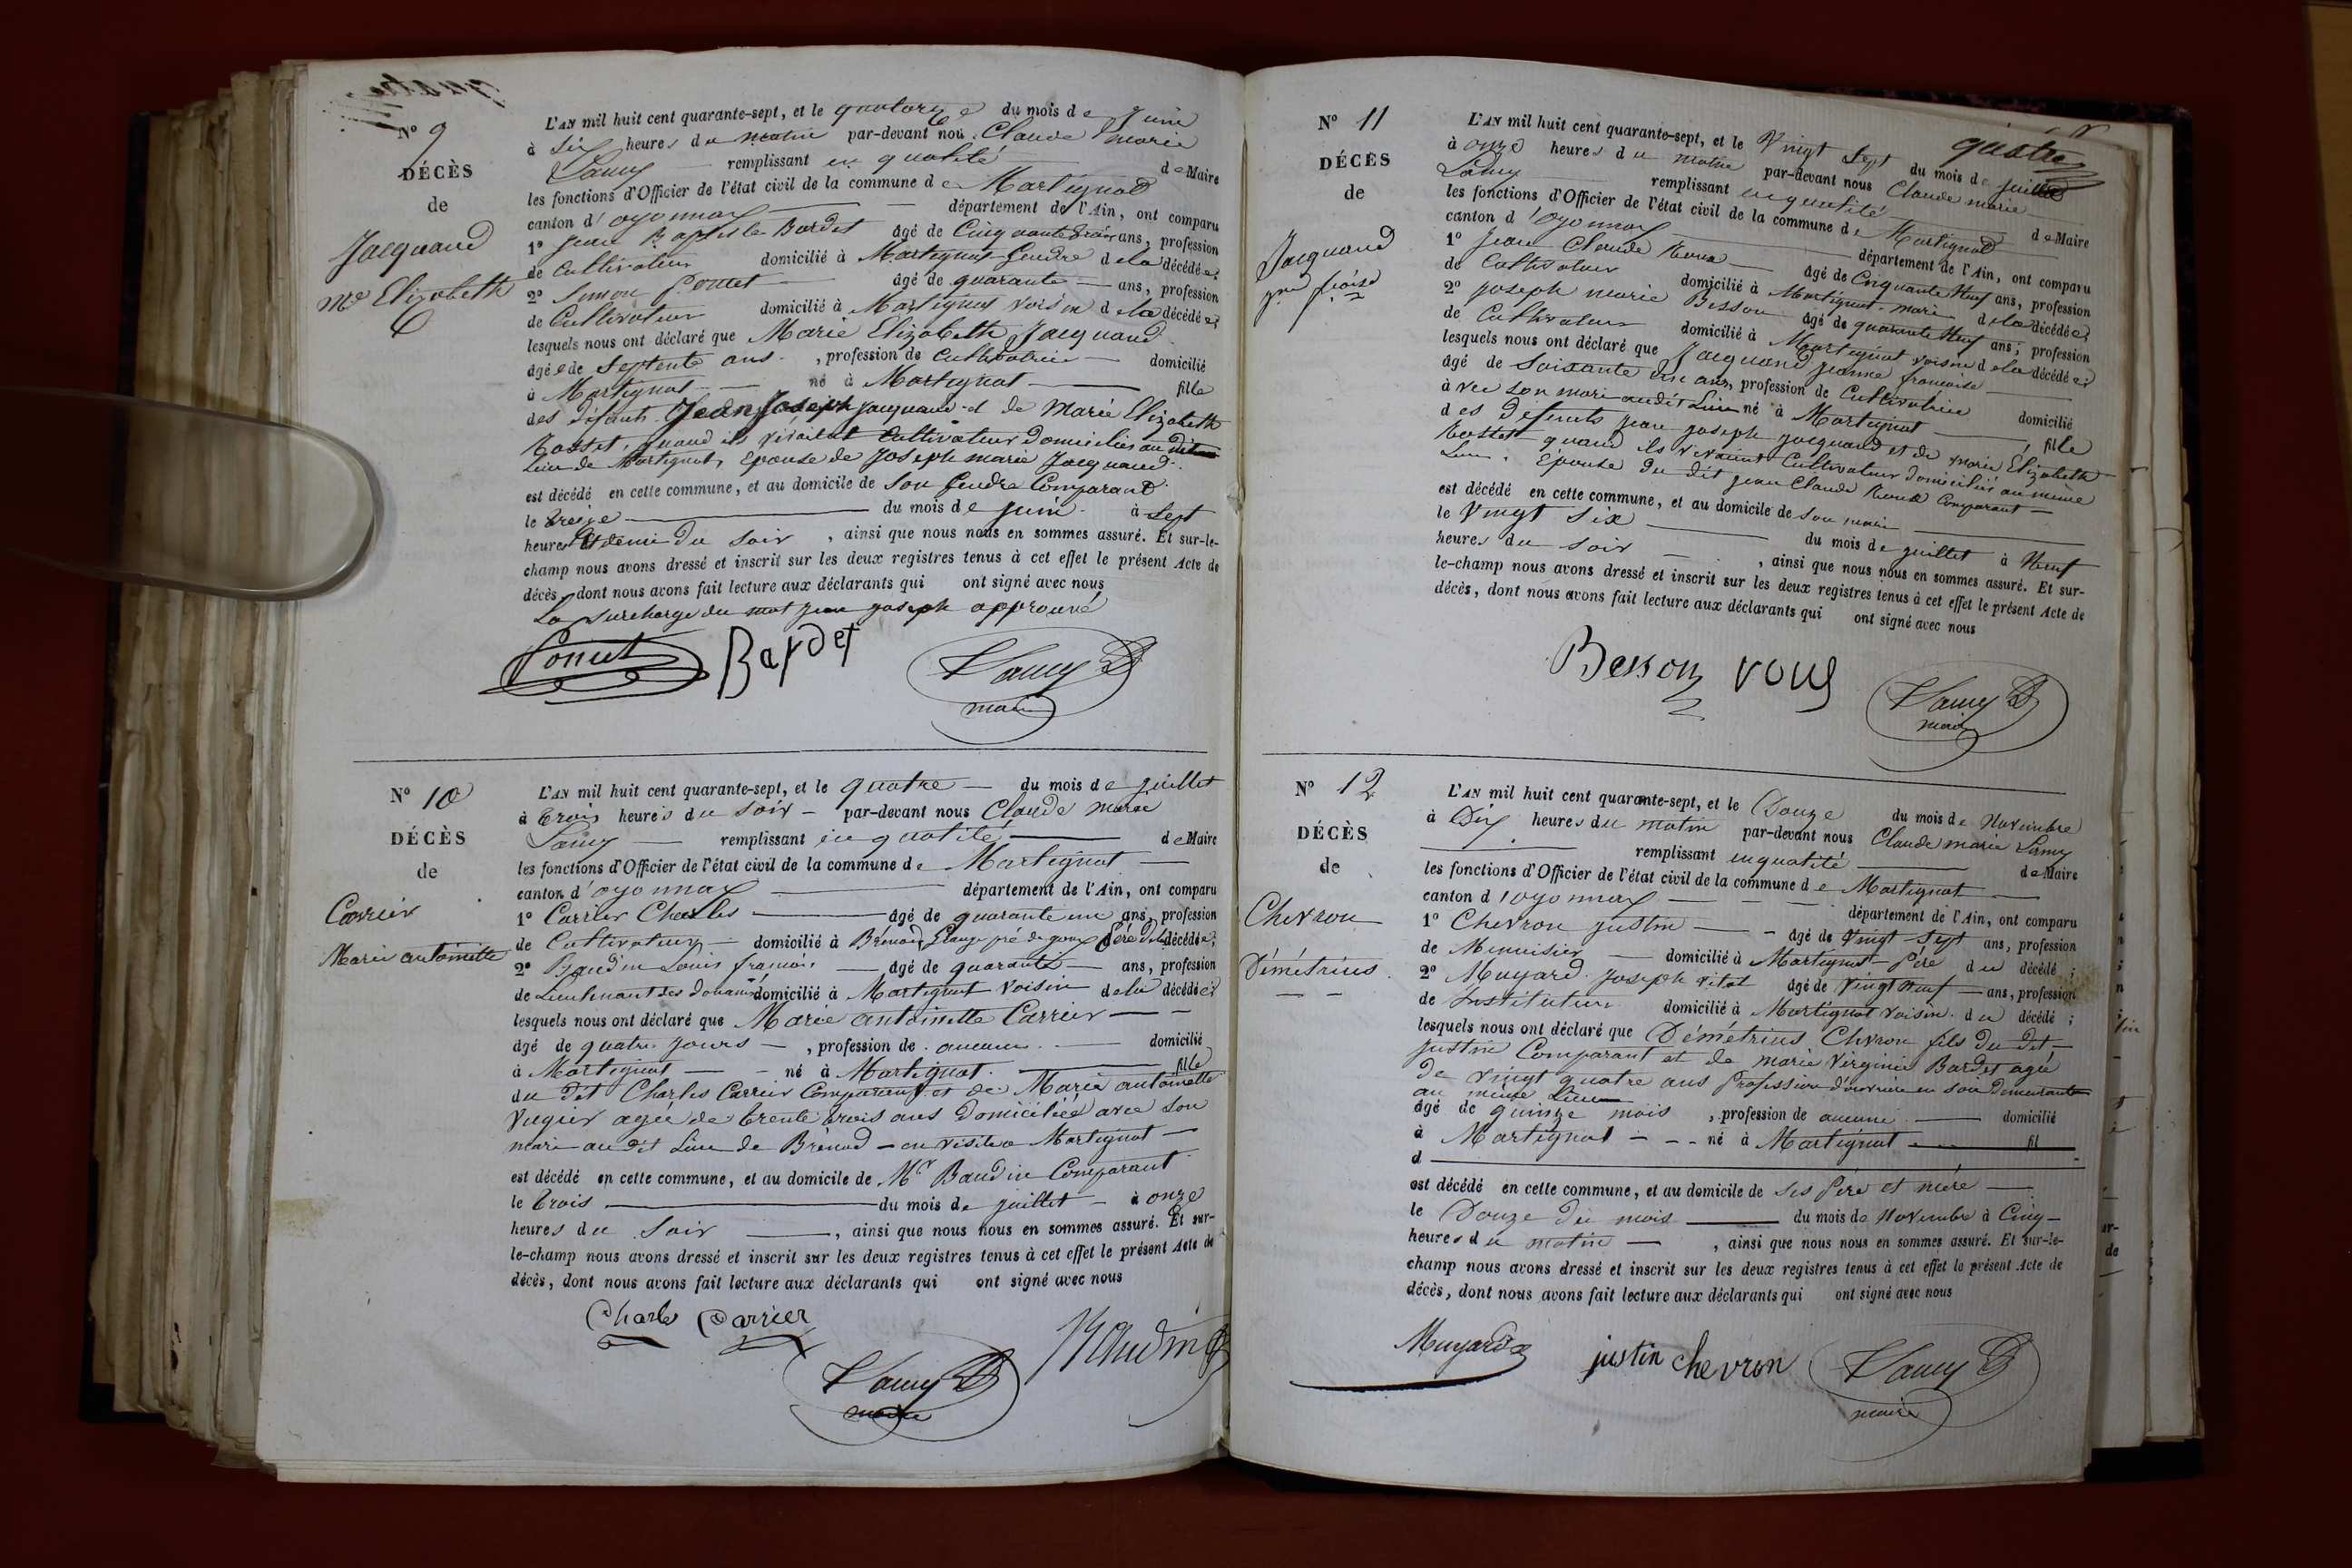 N° 9
DÉCÈS
de
Jacquand
Mie Elizabeth
L'AN mil huit cent quarante-sept, et le quatorze du mois de Juin
à six heures du matin par-devant nous Claude Marie
Lamy remplissant en qualité de Maire
les fonctions d'Officier de l'état civil de la commune de Martignat
canton d'oyonnax département de l'Ain, ont comparu
1° Jean Baptiste Bardet âgé de Cinquante trois ans, profession
de Cultivateur domicilié à Martignat Gendre de la décédée;
2° Simon Poncet âgé de quarante ans, profession
de Cultivateur domicilié à Martignat Voisin de la décédée;
lesquels nous ont déclaré que Marie Elizabeth Jacquand
âgée de septente ans, profession de Cultivatrice domicilié
à Martignat né à Martignat fille
des défunts Jean Joseph Jacquand et de Marie Elizabeth
Rosset, quand ils vivaient Cultivateur Domiciliés au dit
Lieu de Martignat, Epouse de Joseph marie Jacquand.
est décédé en cette commune, et au domicile de son Gendre Comparant
le treize du mois de juin à sept
heures et demi du soir, ainsi que nous nous en sommes assuré. Et sur-le-
champ nous avons dressé et inscrit sur les deux registres tenus à cet effet le présent Acte de
décès, dont nous avons fait lecture aux déclarants qui ont signé avec nous
La surcharge du mot jean joseph approuvé
Poncet Bardet Lamy
maire
N° 10
DÉCÈS
de
Carrier
Marie antoinette
L'AN mil huit cent quarante-sept, et le quatre du mois de juillet
à trois heures du soir par-devant nous Claude marie
Lamy remplissant en qualité de Maire
les fonctions d'Officier de l'état civil de la commune de Martignat
canton d'oyonnax département de l'Ain, ont comparu
1° Carrier Charles âgé de quarante un ans, profession
de Cultivateur domicilié à Brénod, pré de Père de la décédée;
2° Baudin Louis françois âgé de quarante ans, profession
de Lieutenant des douanes domicilié à Martignat Voisin de la décédée;
lesquels nous ont déclaré que Marie antoinette Carrier
âgé de quatre jours, profession de aucune domicilié
à Martignat né à Martignat fille
du dit Charles Carrier Comparant et de Marie antoinette
Vuguier agée de trente trois ans Domiciliée avec son
mari au dit Lieu de Brénod en visite a Martignat
est décédé en cette commune, et au domicile de Mr Baudin Comparant
le trois du mois de juillet à onze
heures du soir, ainsi que nous nous en sommes assuré. Et sur-
le-champ nous avons dressé et inscrit sur les deux registres tenus à cet effet le présent Acte de
décès, dont nous avons fait lecture aux déclarants qui ont signé avec nous
Charle Carrier Baudin
Lamy
maire
quatre
N° 11
DÉCÈS
de
Jacquand
jne fçoise
L'AN mil huit cent quarante-sept, et le Vingt sept du mois de juillet
à onze heures du matin par-devant nous Claude marie
Lamy remplissant en qualité de Maire
les fonctions d'Officier de l'état civil de la commune de Martignat
canton d'oyonnax département de l'Ain, ont comparu
1° Jean Claude Roux âgé de Cinquante Neuf ans, profession
de Cultivateur domicilié à Martignat mari de la décédée;
2° joseph marie Besson âgé de quarante Neuf ans, profession
de Cultivateur domicilié à Martignat voisin de la décédée;
lesquels nous ont déclaré que Jacquand Jeanne françoise
âgé de soisante un ans, profession de Cultivatrice domicilié
avec son mari audit Lieu né à Martignat fille
des défunts jean joseph jacquand et de marie Elizabeth
Rosset quand ils vivaient Cultivateur domiciliés au même
Lieu. Epouse du dit jean Claude Roux Comparant
est décédé en cette commune, et au domicile de son mari
le Vingt six du mois de juillet à Neuf
heures du soir, ainsi que nous nous en sommes assuré. Et sur-
le-champ nous avons dressé et inscrit sur les deux registres tenus à cet effet le présent Acte de
décès, dont nous avons fait lecture aux déclarants qui ont signé avec nous
Besson roux Lamy
maire
N° 12
DÉCÈS
de
Chevron
Démétrius
L'AN mil huit cent quarante-sept, et le Douze du mois de Novembre
à Dix heures du matin par-devant nous Claude marie Lamy
remplissant en qualité de Maire
les fonctions d'Officier de l'état civil de la commune de Martignat
canton d'oyonnax département de l'Ain, ont comparu
1° Chevron justin âgé de Vingt sept ans, profession
de Menuisier domicilié à Martignat Père du décédé;
2° Muyard joseph vital âgé de Vingt Neuf ans, profession
de Instituteur domicilié à Martignat voisin du décédé;
lesquels nous ont déclaré que Démétrius Chevron fils du dit
justin Comparant et de marie Virginie Bardet agée
de vingt quatre ans Profession d'ouvrière en soie Demeurante
au même Lieu
âgé de quinze mois, profession de aucune domicilié
à Martignat né à Martignat fil
d
est décédé en cette commune, et au domicile de ses Père et mère
le Douze du mois du mois de Novembre à Cinq
heures du matin, ainsi que nous nous en sommes assuré. Et sur-le-
champ nous avons dressé et inscrit sur les deux registres tenus à cet effet le présent Acte de
décès, dont nous avons fait lecture aux déclarants qui ont signé avec nous
Muyard justin chevron Lamy
maire